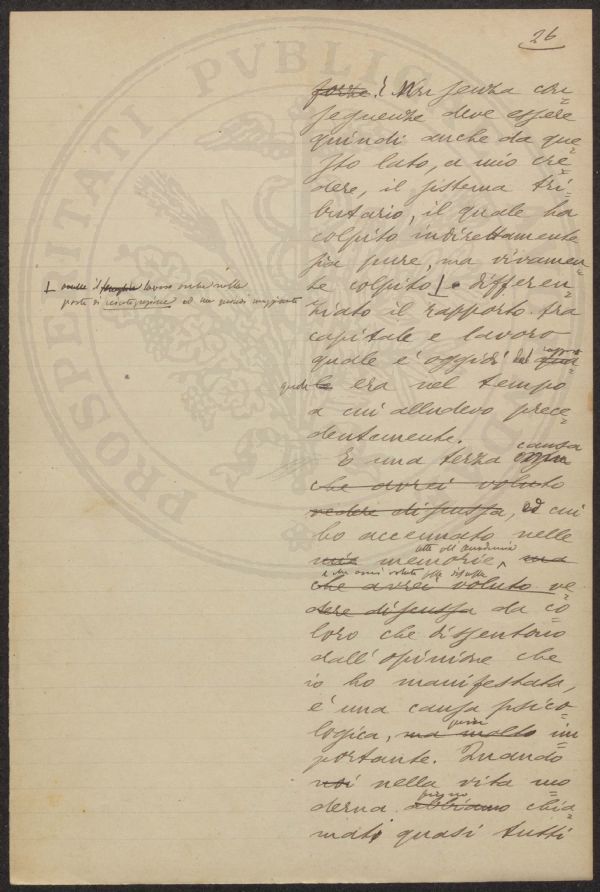 26
forze! Non senza con=
seguenze deve essere
quindi anche da que=
sto lato, a mio cre=
dere, il sistema tri=
butario, il quale ha
colpito indirettamente
sia pure, ma vivamen=
te colpito, differen=
ziato il rapporto tra
capitale e lavoro
quale è oggidì dal
quale era nel tempo
a cui alludevo prece=
dentemente.
E una terza causa
che avrei voluto
vedere discussa, ed cui
ho accennato nelle
mie memorie, ma
che avrei voluto ve=
dere discussa da co=
loro che dissentono
dall'opinione che
io ho manifestata,
è una causa psico=
logica, ma molto im=
portante. Quando
noi nella vita mo=
derna abbiamo chia=
mati quasi tutti
lavoro anche nelle
PROSPERITATI PVBLICAE